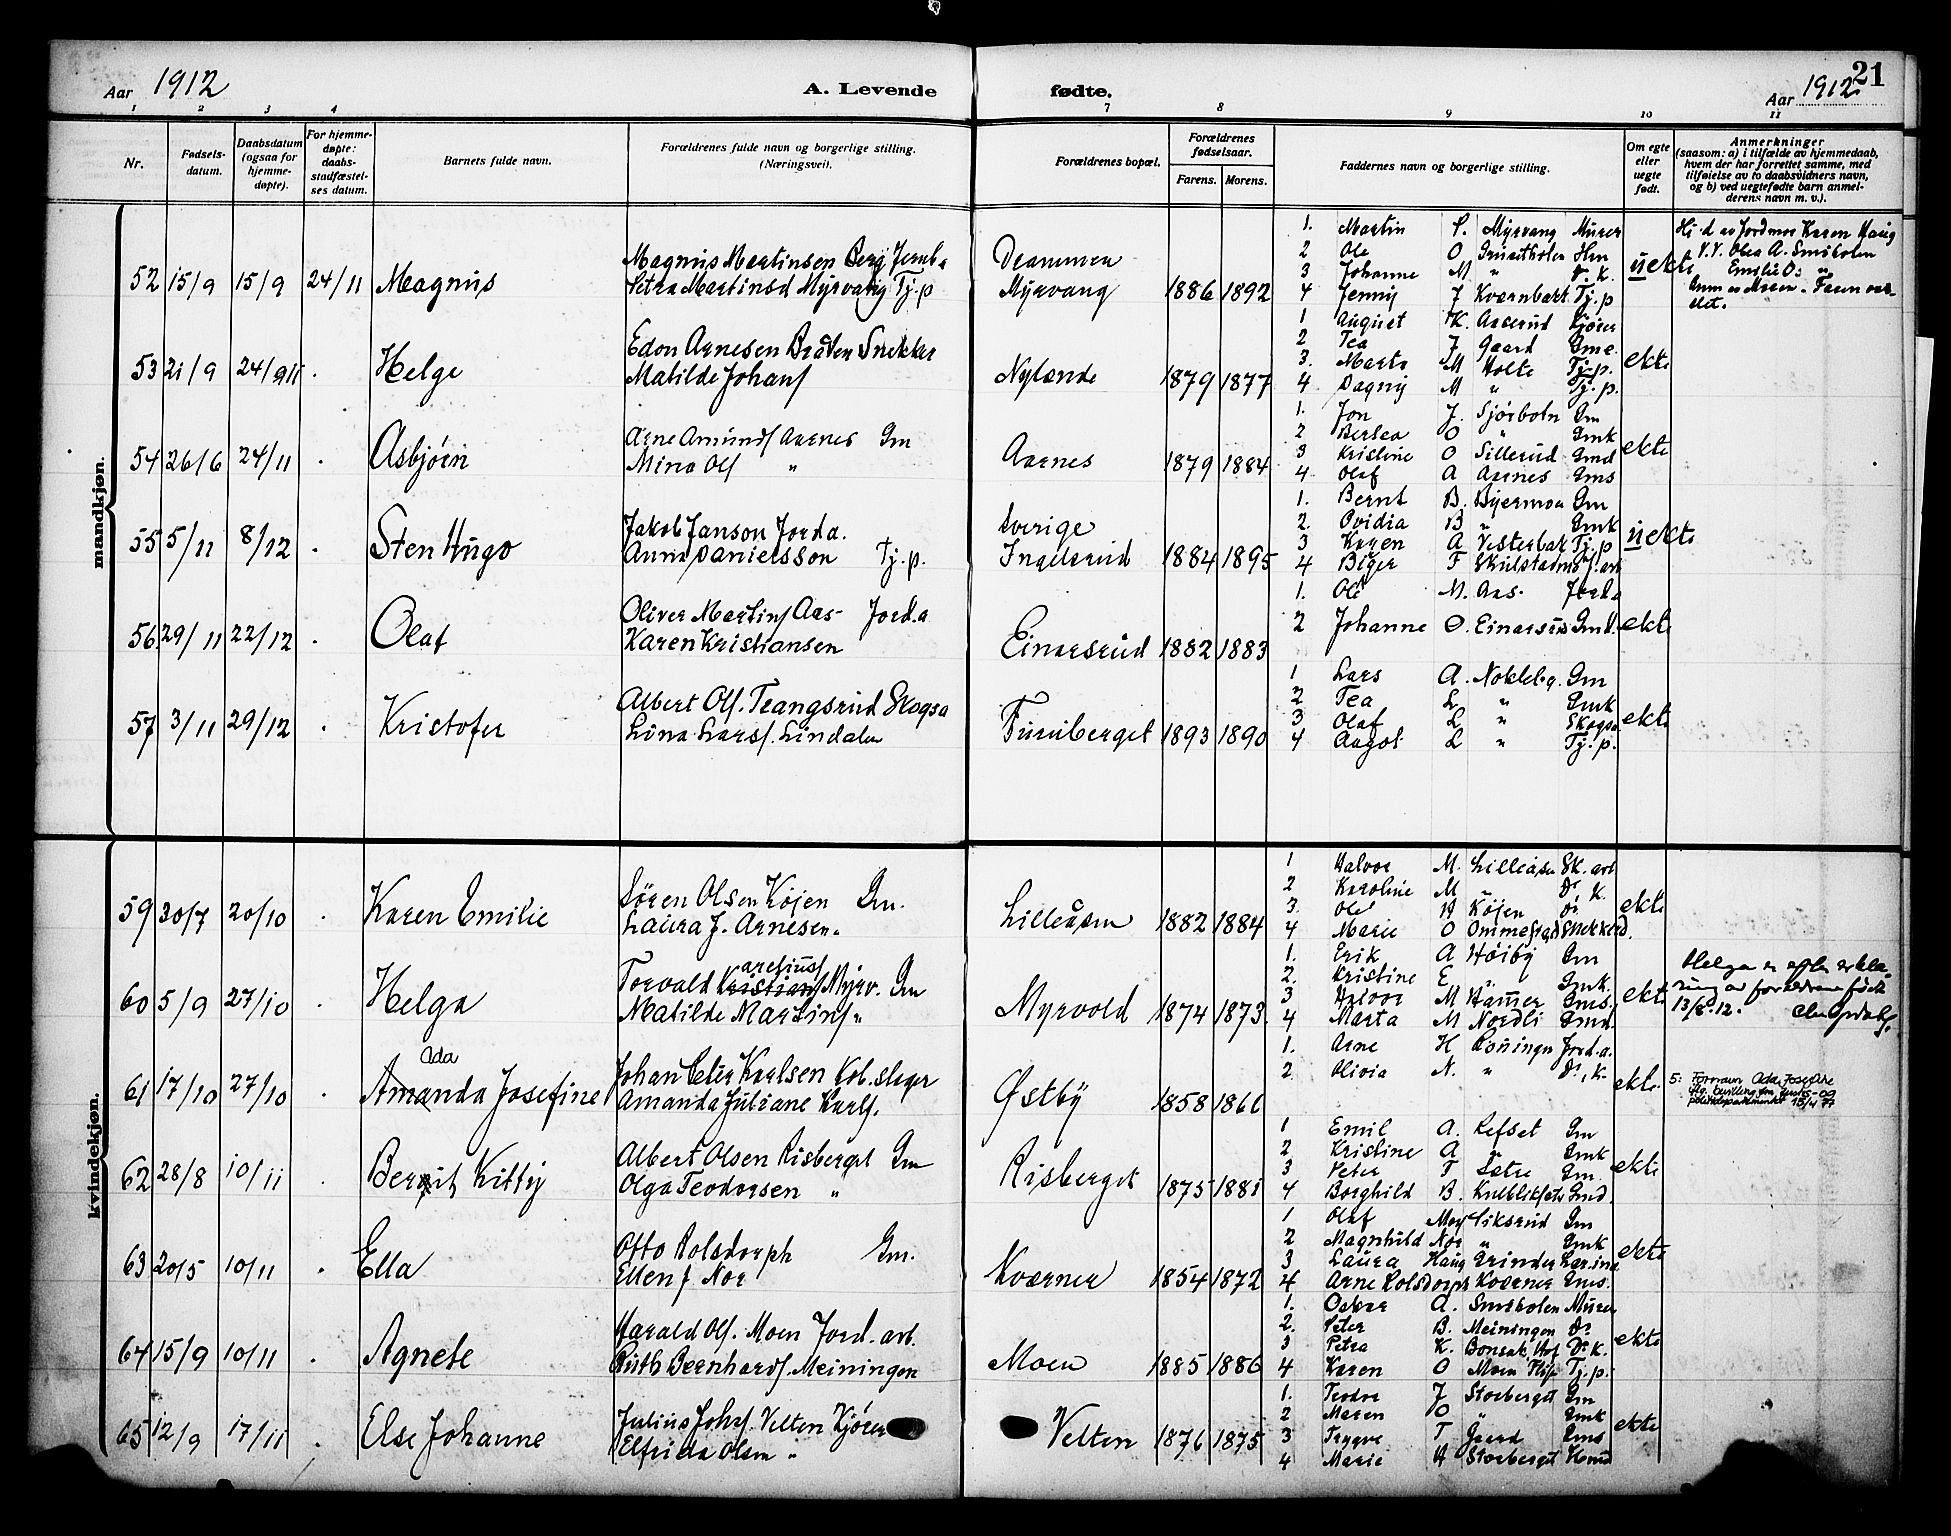 21
Aar 1912
A. Levende fødte.
Aar 1912
1 2 3 4 7 8 9 10 11
Nr.
Fødsels-
datum.
Daabsdatum
(ogsaa for
hjemme-
døpte).
For hjemme-
døpte:
daabs-
stadfæstel-
ses datum.
Barnets fulde navn.
Forældrenes fulde navn og borgerlige stilling.
(Næringsvei).
Forældrenes bopæl.
Forældrenes
fødselsaar.
Farens. Morens.
Faddernes navn og borgerlige stilling.
Om egte
eller
uegte
født.
Anmerkninger
(saasom: a) i tilfælde av hjemmedaab,
hvem der har forrettet samme, med
tilføielse av to daabsvidners navn,
og b) ved uegtefødte barn anmel-
derens navn m. v.).
mandkjøn.
52 15/9 15/9 24/11 Magnus
Magnus Martinsen Berg
Petra Martinsd Myrvang Tj. p
Drammen
Myrvang 1886 1892
1. Martin P. Myrvang Murer
2 Ole O
3 Johanne M " D. K.
4 Jenny J Tj. p
uekte
53 21/9 24/11 . Helge
Edon Arnesen Bråten Snekker
Matilde Johans
Nylænde 1879 1877
1 August K. Aaserud Kjører
2 Tea J Gaard Gme.
3. Marta M Holte Tj. p.
4 Dagny M " Tj. p.
ekte
54 26/6 24/11 . Asbjørn
Arne Amunds Aarnes Gm
Mina Ols "
Aarnes 1879 1884
1. Jon J. Sjørbotn Gm
2 O " Gmk
3 Kristine O Sillerud Gmd
4 Olaf A Aarnes Gms
ekte
55 5/11 8/12 . Sten Hugo
Jakob Janson Jord a.
Anna Danielsson Tj. p.
Sverige
Ingelsrud 1884 1895
1. Bernt B. Bjermoa Gm
2. Ovidia B " Gmk
3 Karen A Vesterbak Tj. p
4 Birger F
uekte
56. 29/11 22/12 . Olaf
Oliver Martins Aas Jord. a
Karen Kristiansen
Einarsrud 1882 1883
1. Ole M. Aas. Jord. a
2 Johanne O. Einarsrud Gmd.
ekte
57 3/11 29/12 . Kristofer
Albert Ols. Trangsrud Skogsa
Lina Lars. Lindalen
Furuberget 1893 1890
1 Lars A. Nokleby. Gm
2 Tea L " Gmk
3 Olaf L " Skogsa
4 Aagot L " Tj. p.
ekte
kvindekjøn.
59 30/7 20/10 . Karen Emilie
Søren Olsen Køjen Gm.
Laura J. Arnesen "
Lilleåsen 1882 1884
1 Halvor M. Lilleåsen Sk. arb
2 Karoline M " D. K.
3. Ole H Køjen Do
4 Marie O
ekte
60 5/9 27/10 . Helga
Torvald Kristians Myrv. Gm
Matilde Martins "
Myrvold 1874 1873.
1. Erik A Høiby Gm
2. Kristine E " Gmk.
3 Halvor M Hamer Gms.
4. Marta M Nordli Gmd.
ekte
Helga er efter erklæ-
ring av forældrene født
13/8-12.
61 17/10 27/10 . Ada
Amanda Josefine
Johan Peter Karlsen
Amanda Juliane Karls.
Østby 1858 1866
1. Arne H Rønningn Jord. a.
2. Olivia N. " D. K.
ekte.
5: Fornavn Ada Josefine
62 28/8 10/11 . Berit Kitty
Albert Olsen Risberget Gm
Olga Teodorsen "
Risberget 1875 1881
1 Emil A. Refset Gm
2 Kristine A " Gmk
3 Peter F Sætre Gm.
4 Borghild B. Gmd.
ekte
63 20/5 10/11 . Ella
Otto Rolsdorph Gm.
Ellen J Nor
Kværner 1854 1872
1 Olaf Moy Siksrud Gm
2 Magnhild Nor " Gmk
3 Laura Haug Grinder Lær.ina
4 Arne Rolsdorph Kværner Gms.
ekte
64 15/9 10/11 . Agnete
Harald Ols. Moen Jord. arb.
Ruth Bernhards. Meiningen
Moen 1885 1886
1. Oskar A. Smisholen Murer
2. Peter B. Meiningen Do
3 Petra K. D. K.
4 Karen O Moen Tj. p.
ekte
65 12/9 17/11 . Else Johanne
Julius Johs. Velten Kjører
Elfrida Olsen "
Velten 1876 1875
1. Teodor J Storberget Gm
2 Maren O " Gmk
3 Trygve T Gaard Gms
4 Marie H Storberget
ekte